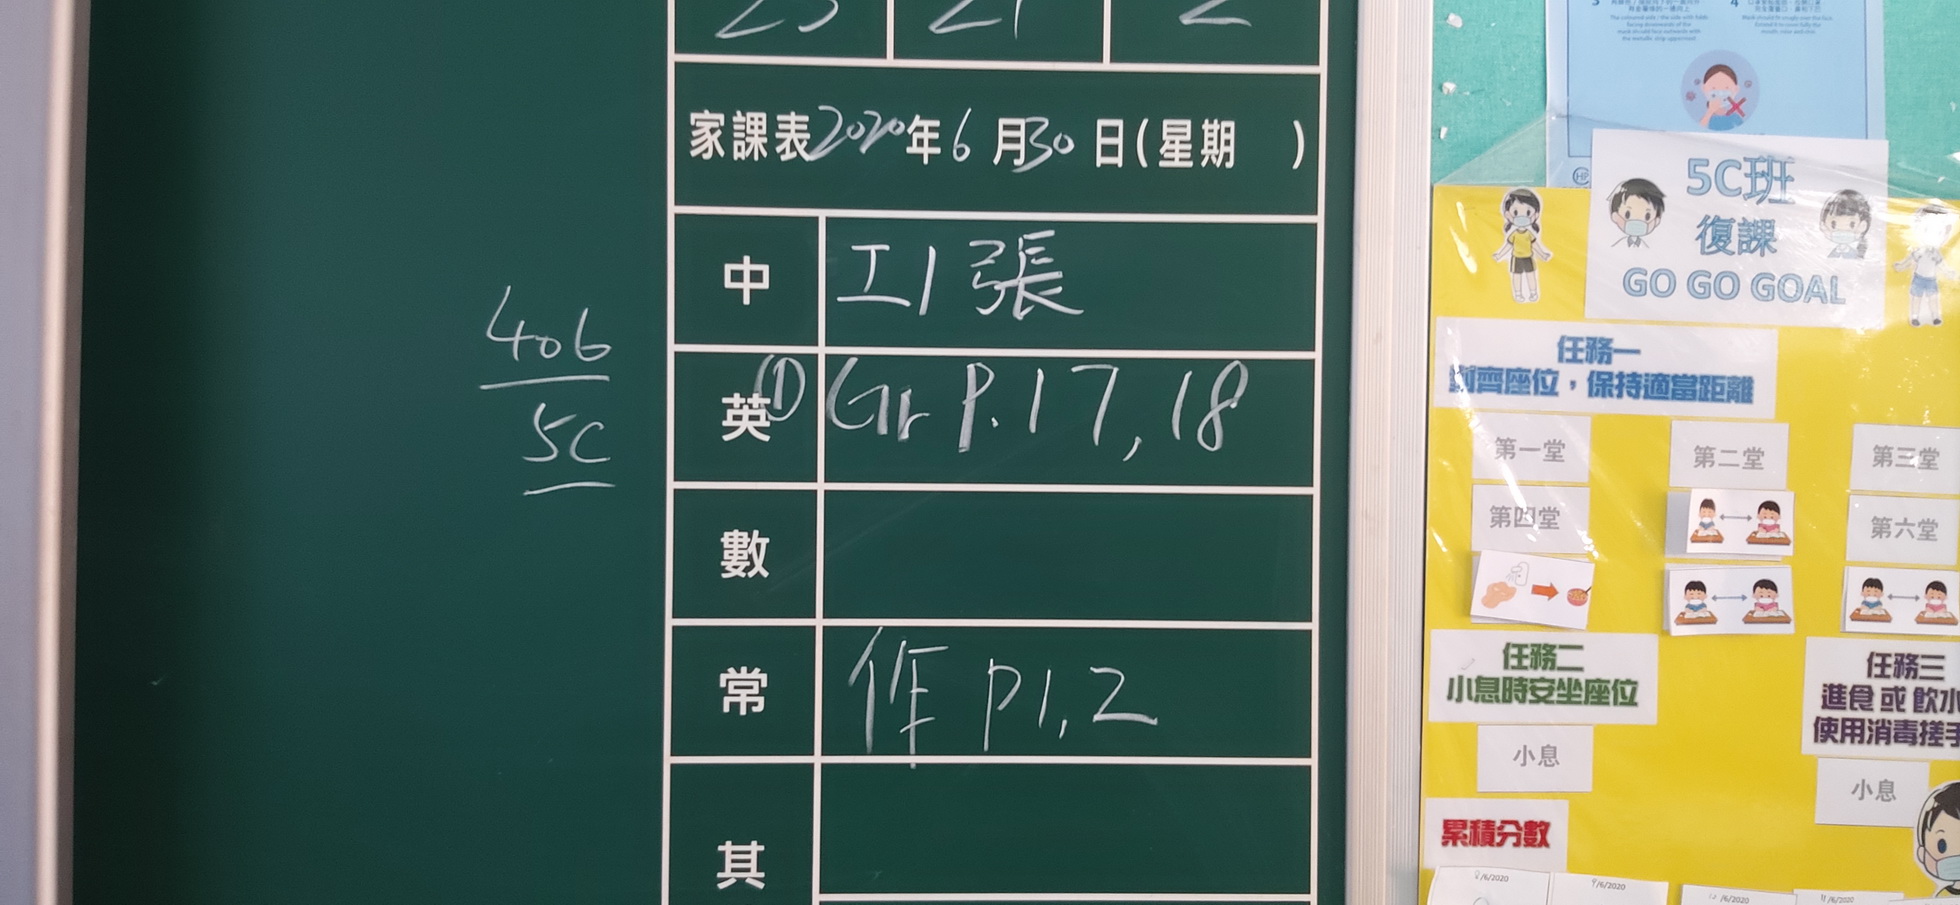 23 21 2
家課表2020年6月30日(星期 )
中 工1 張
英 ① Gr P.17,18
數
常 作 P1,2
其
406
5C
5C班
復課
GO GO GOAL
任務一
齊座位，保持適當距離
第一堂 第二堂 第三堂
第四堂 第六堂
任務二
小息時安坐座位
小息
任務三
進食或飲水
使用消毒搓手
小息
累積分數
9/6/2020
11/6/2020